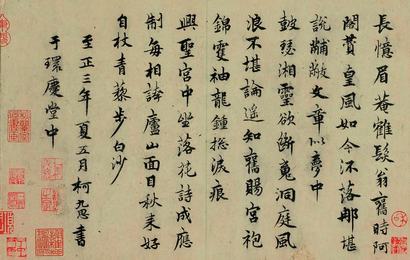 長憶眉菴鶴髮翁舊時阿
閣貫皇風如今冷落那堪
說黼黻文章似夢中
鼓瑟湘靈欲斷魂洞庭風
浪不堪論遙知舊賜宮袍
錦雙袖龍鍾摠淚痕
興聖宮中坐落花詩成應
制每相誇廬山面目秋來好
自杖青藜步白沙
至正三年夏五月柯九思書
于環慶堂中